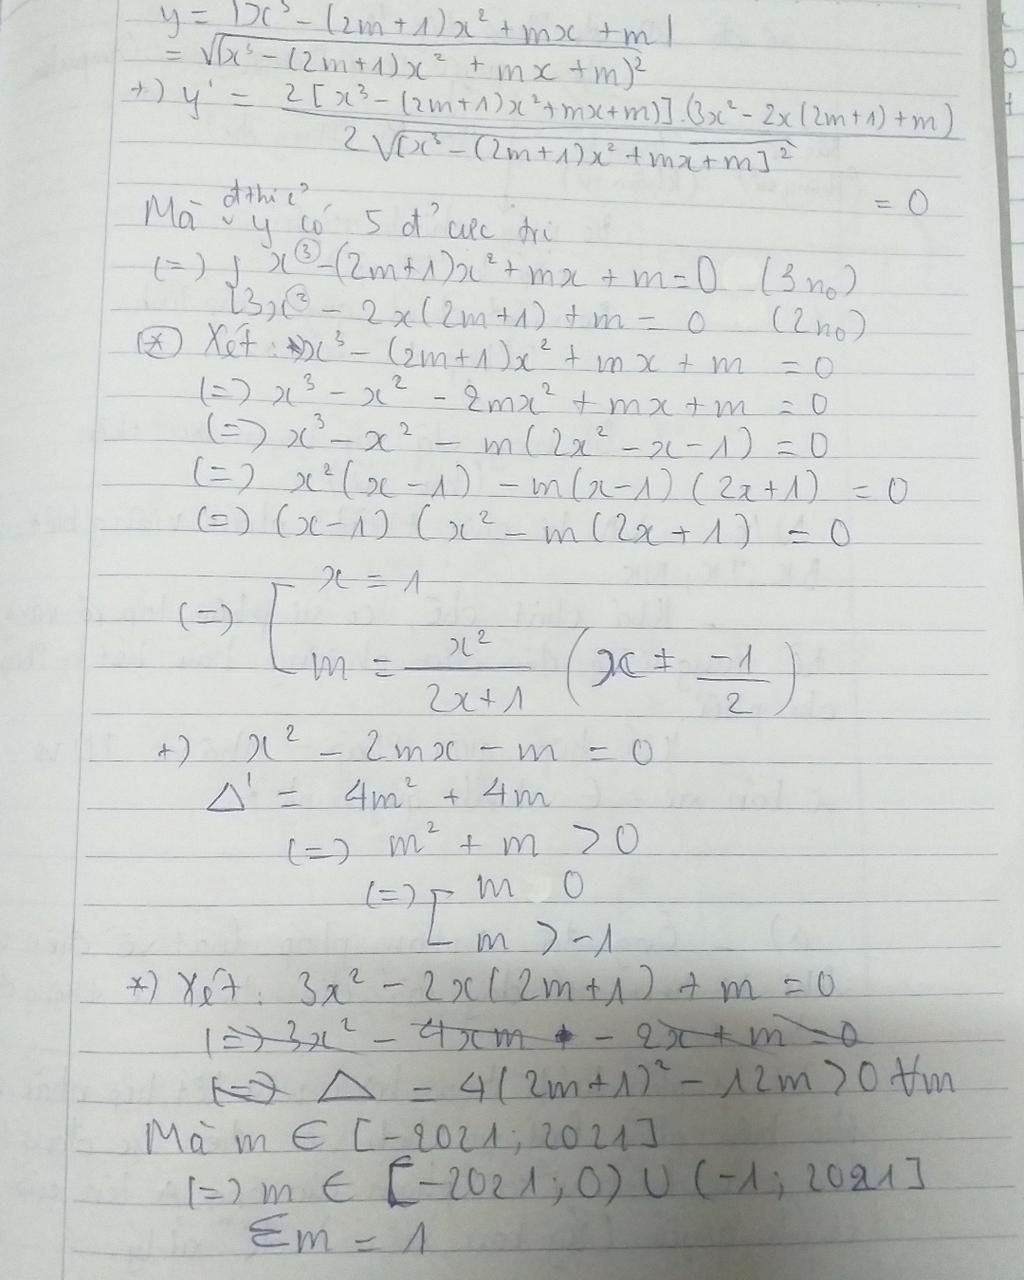 y = |x³ - (2m+1)x² + mx + m|
= √(x³ - (2m+1)x² + mx + m)²
+) y' = 2[x³ - (2m+1)x² + mx + m)].(3x² - 2x(2m+1) + m) / 2√[x³ - (2m+1)x² + mx + m]² = 0
Mà đthị y có 5 đ' cực trị
(=) { x³ - (2m+1)x² + mx + m = 0 (3n₀)
{ 3x² - 2x(2m+1) + m = 0 (2n₀)
(*) Xét: x³ - (2m+1)x² + mx + m = 0
(=) x³ - x² - 2mx² + mx + m = 0
(=) x³ - x² - m(2x² - x - 1) = 0
(=) x²(x-1) - m(x-1)(2x+1) = 0
(=) (x-1)(x² - m(2x+1) = 0
(=) [ x = 1
[ m = x² / 2x+1 (x ≠ -1/2)
+) x² - 2mx - m = 0
Δ' = 4m² + 4m
(=) m² + m > 0
(=) [ m 0
[ m > -1
*) Xét: 3x² - 2x(2m+1) + m = 0
(=) 3x² - 4xm - 2x + m = 0
(=) Δ = 4(2m+1)² - 12m > 0 ∀m
Mà m ∈ [-2021; 2021]
(=) m ∈ [-2021; 0) ∪ (-1; 2021]
Σm = 1